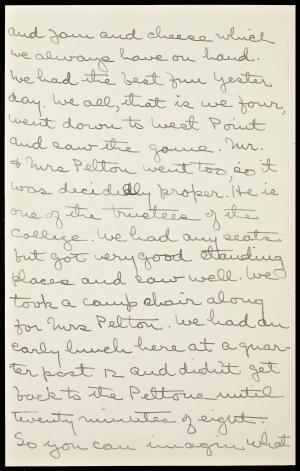 and jam and cheese which
we always have on hand.
We had the best fun yester
day. We all, that is we four,
went down to West Point
and saw the game. Mr.
& Mrs Pelton went too, so it
was decidedly proper. He is
one of the trustees of the
College. We had any seats
but got very good standing
places and saw well. We
took a camp chair along
for Mrs Pelton. We had an
early lunch here at a quar-
ter past 12 and didn't get
back to the Peltons until
twenty minutes of eight.
So you can imagin what